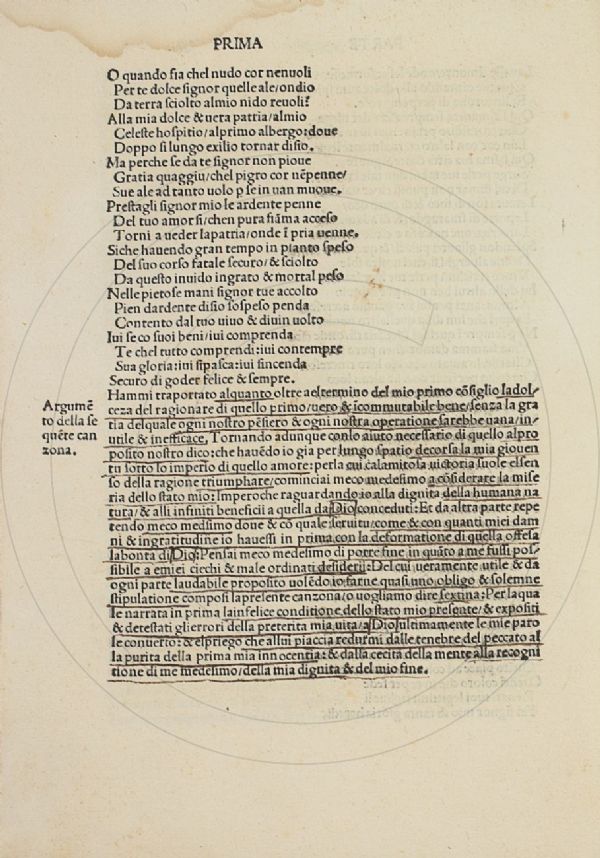 PRIMA
O quando fia chel nudo cor nenuoli
Per te dolce signor quelle ale/ondio
Da terra sciolto almio nido reuoli?
Alla mia dolce & uera patria/almio
Celeste hospitio/alprimo albergo:doue
Doppo si lungo exilio tornar disio.
Ma perche se da te signor non pioue
Gratia quaggiu/chel pigro cor nēpenne/
Sue ale ad tanto uolo p se in uan muoue.
Prestagli signor mio le ardente penne
Del tuo amor si/chen pura fiāma acceso
Torni a ueder lapatria/onde ī pria uenne.
Siche hauendo gran tempo in pianto speso
Del suo corso fatale securo/& sciolto
Da questo inuido ingrato & mortal peso
Nelle pietose mani signor tue accolto
Pien dardente disio iospeso penda
Contento dal tuo uiuo & diuin uolto
Iui se co suoi beni/iui comprenda
Te chel tutto comprendi:iui contempre
Sua gloria:iui sipasca:iui sincenda
Securo di goder felice & sempre.
Hammi traportato alquanto oltre aeltermino del mio primo cōsiglio ladol-
ceza del ragionare di quello primo/uero & īcommutabile bene/senza la gra
tia delquale ogni nostro pēsiero & ogni nostra operatione sarebbe uana/in-
utile & inefficace. Tornando adunque conlo aiuto necessario di quello alpro
posito nostro dico:che hauēdo io gia per lungo spatio decorsa la mia giouen
tu sotto lo imperio di quello amore:perla cui calamitosa uictoria suole essen
so della ragione triumphare/cominciai meco medesimo a cōsiderare la mise
ria dello stato mio:Imperoche raguardando io alla dignita della humana na
tura/& alli infiniti beneficii a quella da Dio conceduti:Et da altra parte repe
tendo meco medsimo doue & cō quale seruitu/come & con quanti miei dam
ni & ingratitudine io hauessi in prima con la deformatione di quella offesa
labonta di Dio:Pensai meco medesimo di porre fine in quāto a me fussi pos-
sibile a emiei ciechi & male ordinati desiderii:Del cui ueramente utile & da
ogni parte laudabile proposito uolēdo io farne quasi uno obligo & solemne
stipulatione composi lapresente canzona/o uogliamo dire sextina:Per laqua
le narrata in prima lainfelice conditione dello stato mio presente/& expositi
& detestati glierrori della preterita mia uita/a Dio ultimamente le mie paro
le conuerto:& elpriego che allui piaccia redurmi dalle tenebre del peccato al
la purita della prima mia innocentia:& dalla cecita della mente alla recogni
tione di me medesimo/della mia dignita & del mio fine.
Argumē
to della se
quēte can
zona.